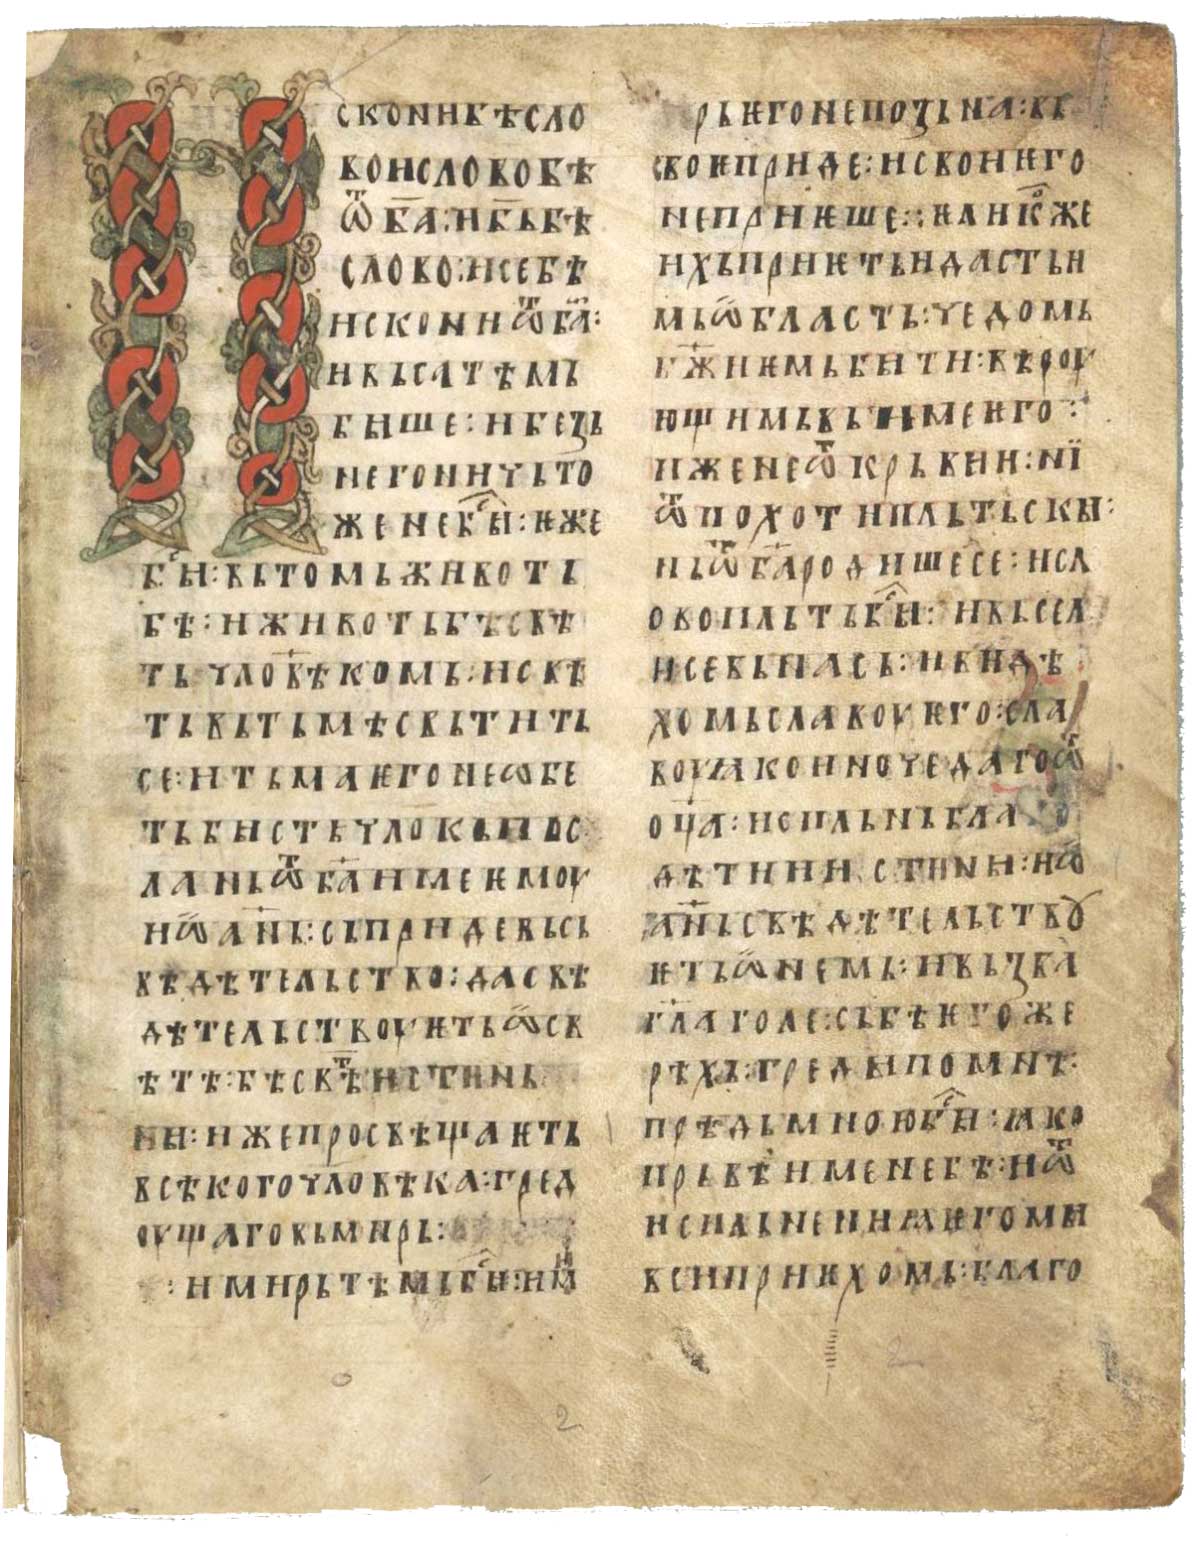 И
скони бѣ сло
во и слово бѣ
ѿ ба҃ : и бъ҃ бѣ
слово : и се бѣ
искони ѿ ба҃ :
и вьса тѣмь
бише : и безь
него ничьто
же не бы҇ : ѥже
бы҇ : вь томь животь
бѣ : и животь бѣ свѣ
ть чло҃вѣкомь : и свѣ
ть вь тьмѣ свьтить
се : и тьма ѥго не ѡбе
ть бысть чло҃вкь пос
лань ѿ ба҃ име ѥмоу
иѡань҃ : сь приде вь сь
вѣдѣтельство : да свѣ
дѣтельствоуѥть ѡ св
ѣтѣ : бѣ свтѣ истинь
ны : иже просвѣщаѥть
всѣкого чло҃вѣка : гред
оущаго вь мирь :
: и мирь тѣмь бы҇ : и ми
рь ѥго не позьна : вь
своꙗ приде : и свои ѥго
не приѥше : ѥлико҃же
ихь приѥть и дасть и
мь ѡбласть : чедомь
бж҃иѥмь быти : вѣроу
ющимь вь име ѥго :
иже не ѿ крьви : нї
ѿ похоти пльтьскы :
нь ѿ ба҃ родише се : и сл
ово пльть бы҇ : и вьсел
и се вь нась : и видѣ
хомь славоу ѥго : сла
воу ꙗко иночедаго ѿ
оц҃а : испльнь благо
дѣти и истины : иѡ
ань҃ свѣдѣтельствꙋ
ѥть ѡ немь : и вьзва
гл҃аголе : сь бѣ ѥгоже
рѣхь : греды по мнѣ :
прѣдь мною бы҇ : ꙗко
прьвѣи мене бѣ : и ѿ
испльнениꙗ ѥго мы
вси приѥхомь : благо
2
2